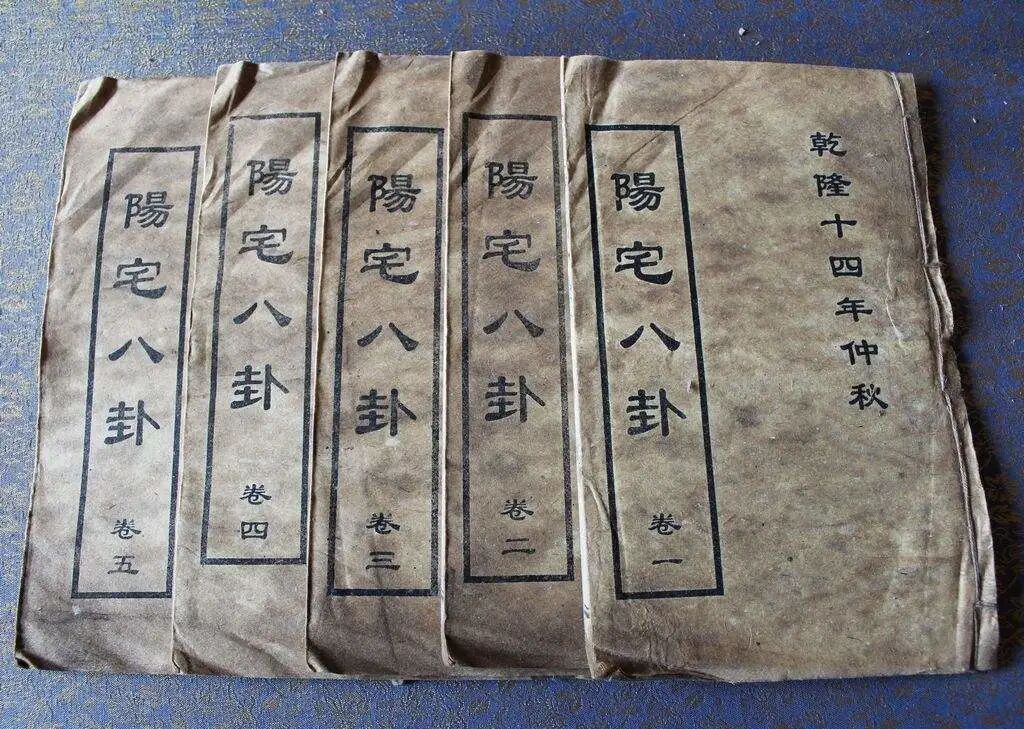 乾隆十四年仲秋
陽宅八卦
卷一
陽宅八卦
卷二
陽宅八卦
卷三
陽宅八卦
卷四
陽宅八卦
卷五